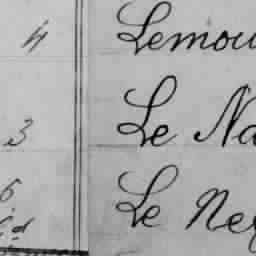 4 Lemou
3 Le Na
6 Le Neg